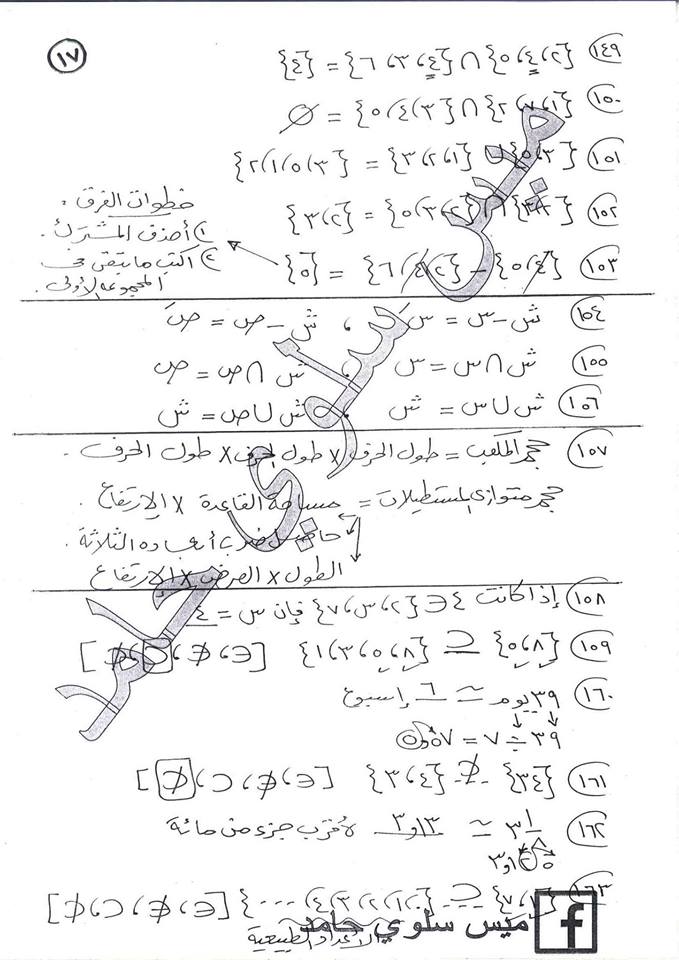 ١٧
١٤٩ {٢، ٤، ٥} ∩ {٤، ٣، ٦} = {٤}
١٥٠ {١، ٧، ٢} ∩ {٣، ٤، ٥} = ∅
١٥١ {٣، ٥} ∪ {١، ٢، ٣} = {٣، ٥، ١، ٢}
١٥٢ {٣، ٢} ∩ {٢، ٣، ٥} = {٢، ٣}
١٥٣ {٤، ٥} - {٢، ٤، ٦} = {٥}
خطوات الفرق :
١) أحذف المشترك .
٢) اكتب ما يتبقى فى
المجموعة الأولى .
١٥٤ ش - س = سَ ، ش - ص = صَ
١٥٥ ش ∩ س = س ش ∩ ص = ص
١٥٦ ش ∪ س = ش ، ش ∪ ص = ش
١٥٧ حجم المكعب = طول الحرف × طول الحرف × طول الحرف .
حجم متوازى المستطيلات = مساحة القاعدة × الإرتفاع .
حاصل ضرب أبعاده الثلاثة .
الطول × العرض × الإرتفاع
١٥٨ إذا كانت ٤ ∈ {٢، س، ٧} فإن س = ٤
١٥٩ {٨، ٥} ⊂ {٨، ٥، ٣، ١} [∈، ∉، ⊂، ⊄]
١٦٠ ٣٩ يوم ≃ ٦ إسبوع
٣٩ ÷ ٧ =
١٦١ {٣٤} ⊄ {٤، ٣} [∈، ∉، ⊂، ⊄]
١٦٢ ≃ ٣,١٣ لأقرب جزء من مائة
١٦٣ {٧، ١} ⊂ {٠، ١، ٢، ٣، ٤، ...} [∈، ∉، ⊂، ⊄]
الأعداد الطبيعية
f ميس سلوي حامد